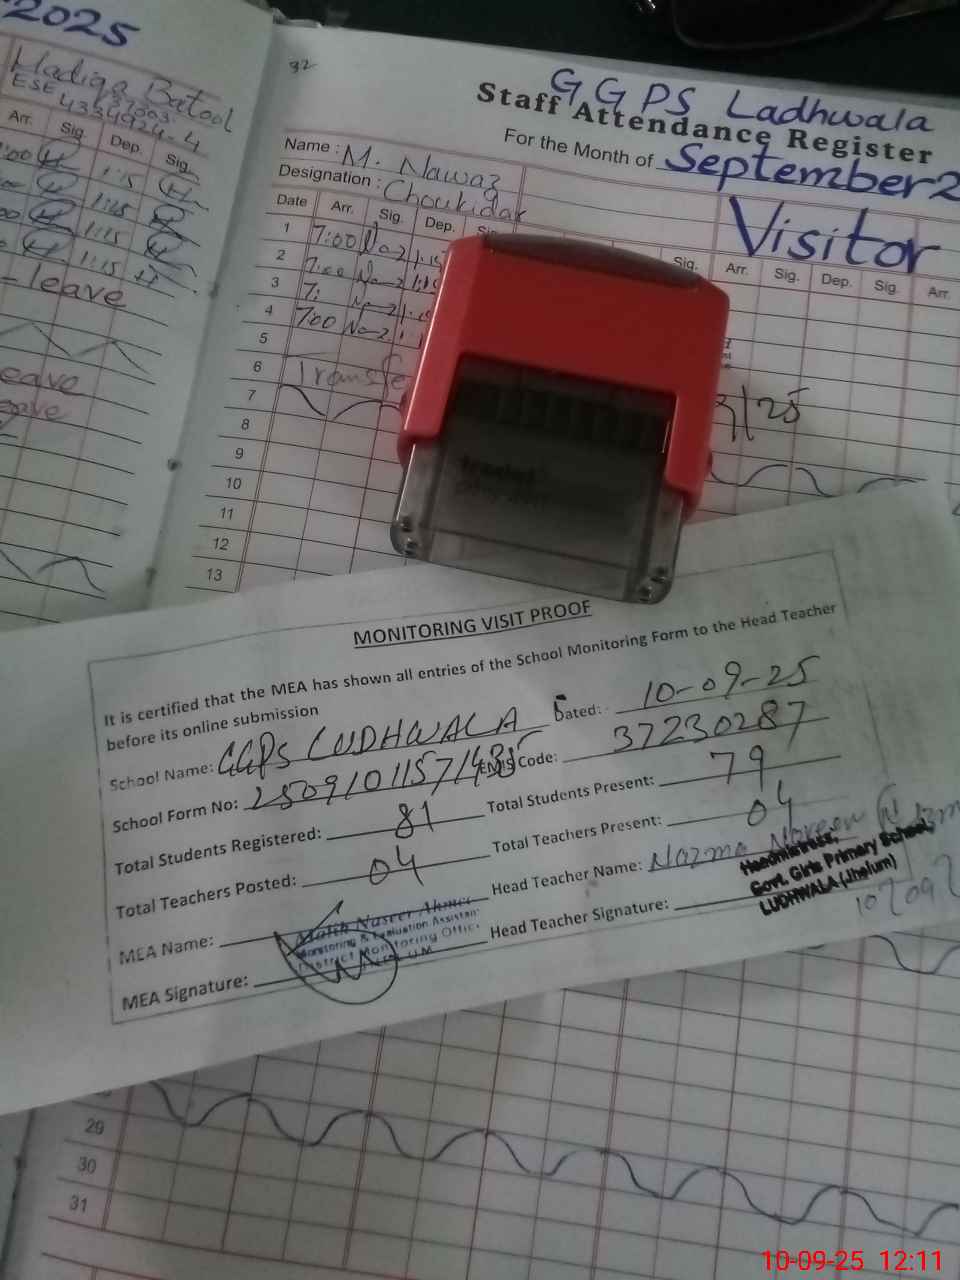 2025
Hadiqa Batool
ESE
Arr. Sig. Dep. Sig.
:00 1:15
1:15
00 1:15
1:15
= leave
eave
eave
32
G G P S Ladhwala
Staff Attendance Register
For the Month of September 2
Name : M. Nawaz
Designation : Choukidar
Visitor
Date Arr. Sig. Dep. Sig. Sig. Arr. Sig. Dep. Sig. Arr.
1 7:00
2 7:00
3 7:
4 7:00
5
6 Transfe
7 /25
8
9
10
11
12
13
MONITORING VISIT PROOF
It is certified that the MEA has shown all entries of the School Monitoring Form to the Head Teacher
before its online submission
School Name: GGPS LUDHWALA Dated: 10-09-25
School Form No: EMIS Code: 37230287
Total Students Registered: 81 Total Students Present: 79
Total Teachers Posted: 04 Total Teachers Present: 04
MEA Name: Malik Naseer Ahmed Head Teacher Name: Nazma Noreen
Monitoring & Evaluation Assistant
District Monitoring Office
Headmistress,
Govt. Girls Primary School,
LUDHWALA (Jhelum)
MEA Signature: Head Teacher Signature:
29
30
31
10-09-25 12:11